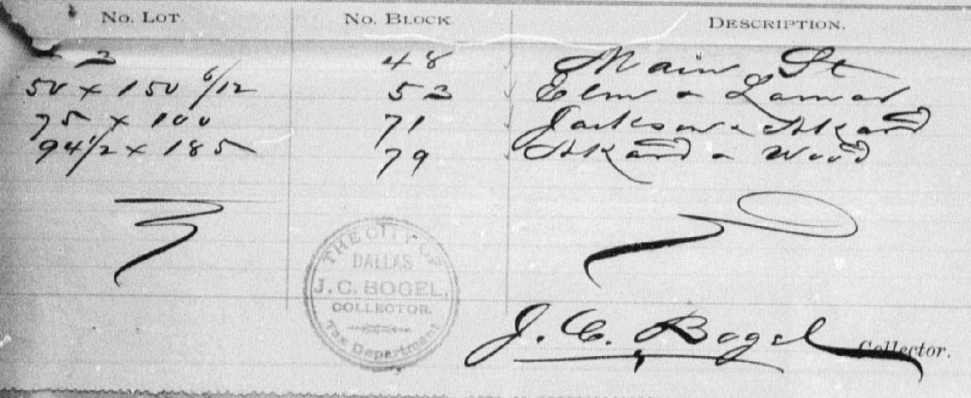 No. Lot. No. Block. Description.
2 48 Main St
50 x 150 6/12 52 Elm & Lamar
75 x 100 71 Jackson & Akard
94 1/2 x 185 79 Akard & Wood
THE CITY OF
DALLAS
J. C. BOGEL,
COLLECTOR.
Tax Department
J. C. Bogel Collector.